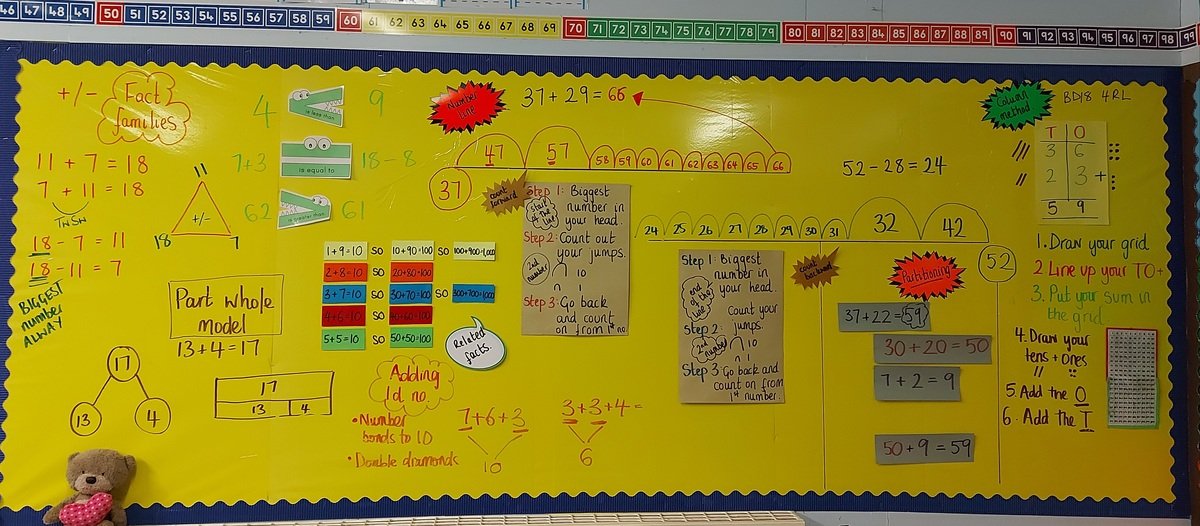 46 47 48 49 50 51 52 53 54 55 56 57 58 59 60 61 62 63 64 65 66 67 68 69 70 71 72 73 74 75 76 77 78 79 80 81 82 83 84 85 86 87 88 89 90 91 92 93 94 95 96 97 98 99
+/- Fact
families
11 + 7 = 18
7 + 11 = 18
TWSW
18 - 7 = 11
18 - 11 = 7
BIGGEST
number
AWAY
11
+/-
18 7
4 is less than 9
7+3 is equal to 18 - 8
62 is greater than 61
Part whole
model
13+4=17
17
13 4
17
13 4
1+9=10 so 10+90=100 so 100+900=1,000
2+8=10 so 20+80=100
3+7=10 so 30+70=100 so 300+700=1000
4+6=10 so 40+60=100
5+5=10 so 50+50=100
Related
facts.
Adding
1d no.
• Number
bonds to 10
• Double diamonds
7+6+3
10
3+3+4=
6
Number
line
37+29=66
37 47 57 58 59 60 61 62 63 64 65 66
count
forward
Step 1: Biggest
number in
your head.
start of the line
Step 2: Count out
your jumps.
2nd number
10
Step 3: Go back
and count
on from 1st no.
52-28=24
24 25 26 27 28 29 30 31 32 42
52
count
backward
Step 1: Biggest
number in
your head.
end of the line
Step 2: Count your
jumps.
2nd number
10
Step 3: Go back and
count on from
1st number.
Partitioning
37+22=59
30+20=50
7+2=9
50+9=59
Column
method
BD18 4RL
T O
3 6
2 3 +
5 9
1. Draw your grid
2 Line up your TO+
3. Put your sum in
the grid.
4. Draw your
tens + ones
5. Add the O
6. Add the T